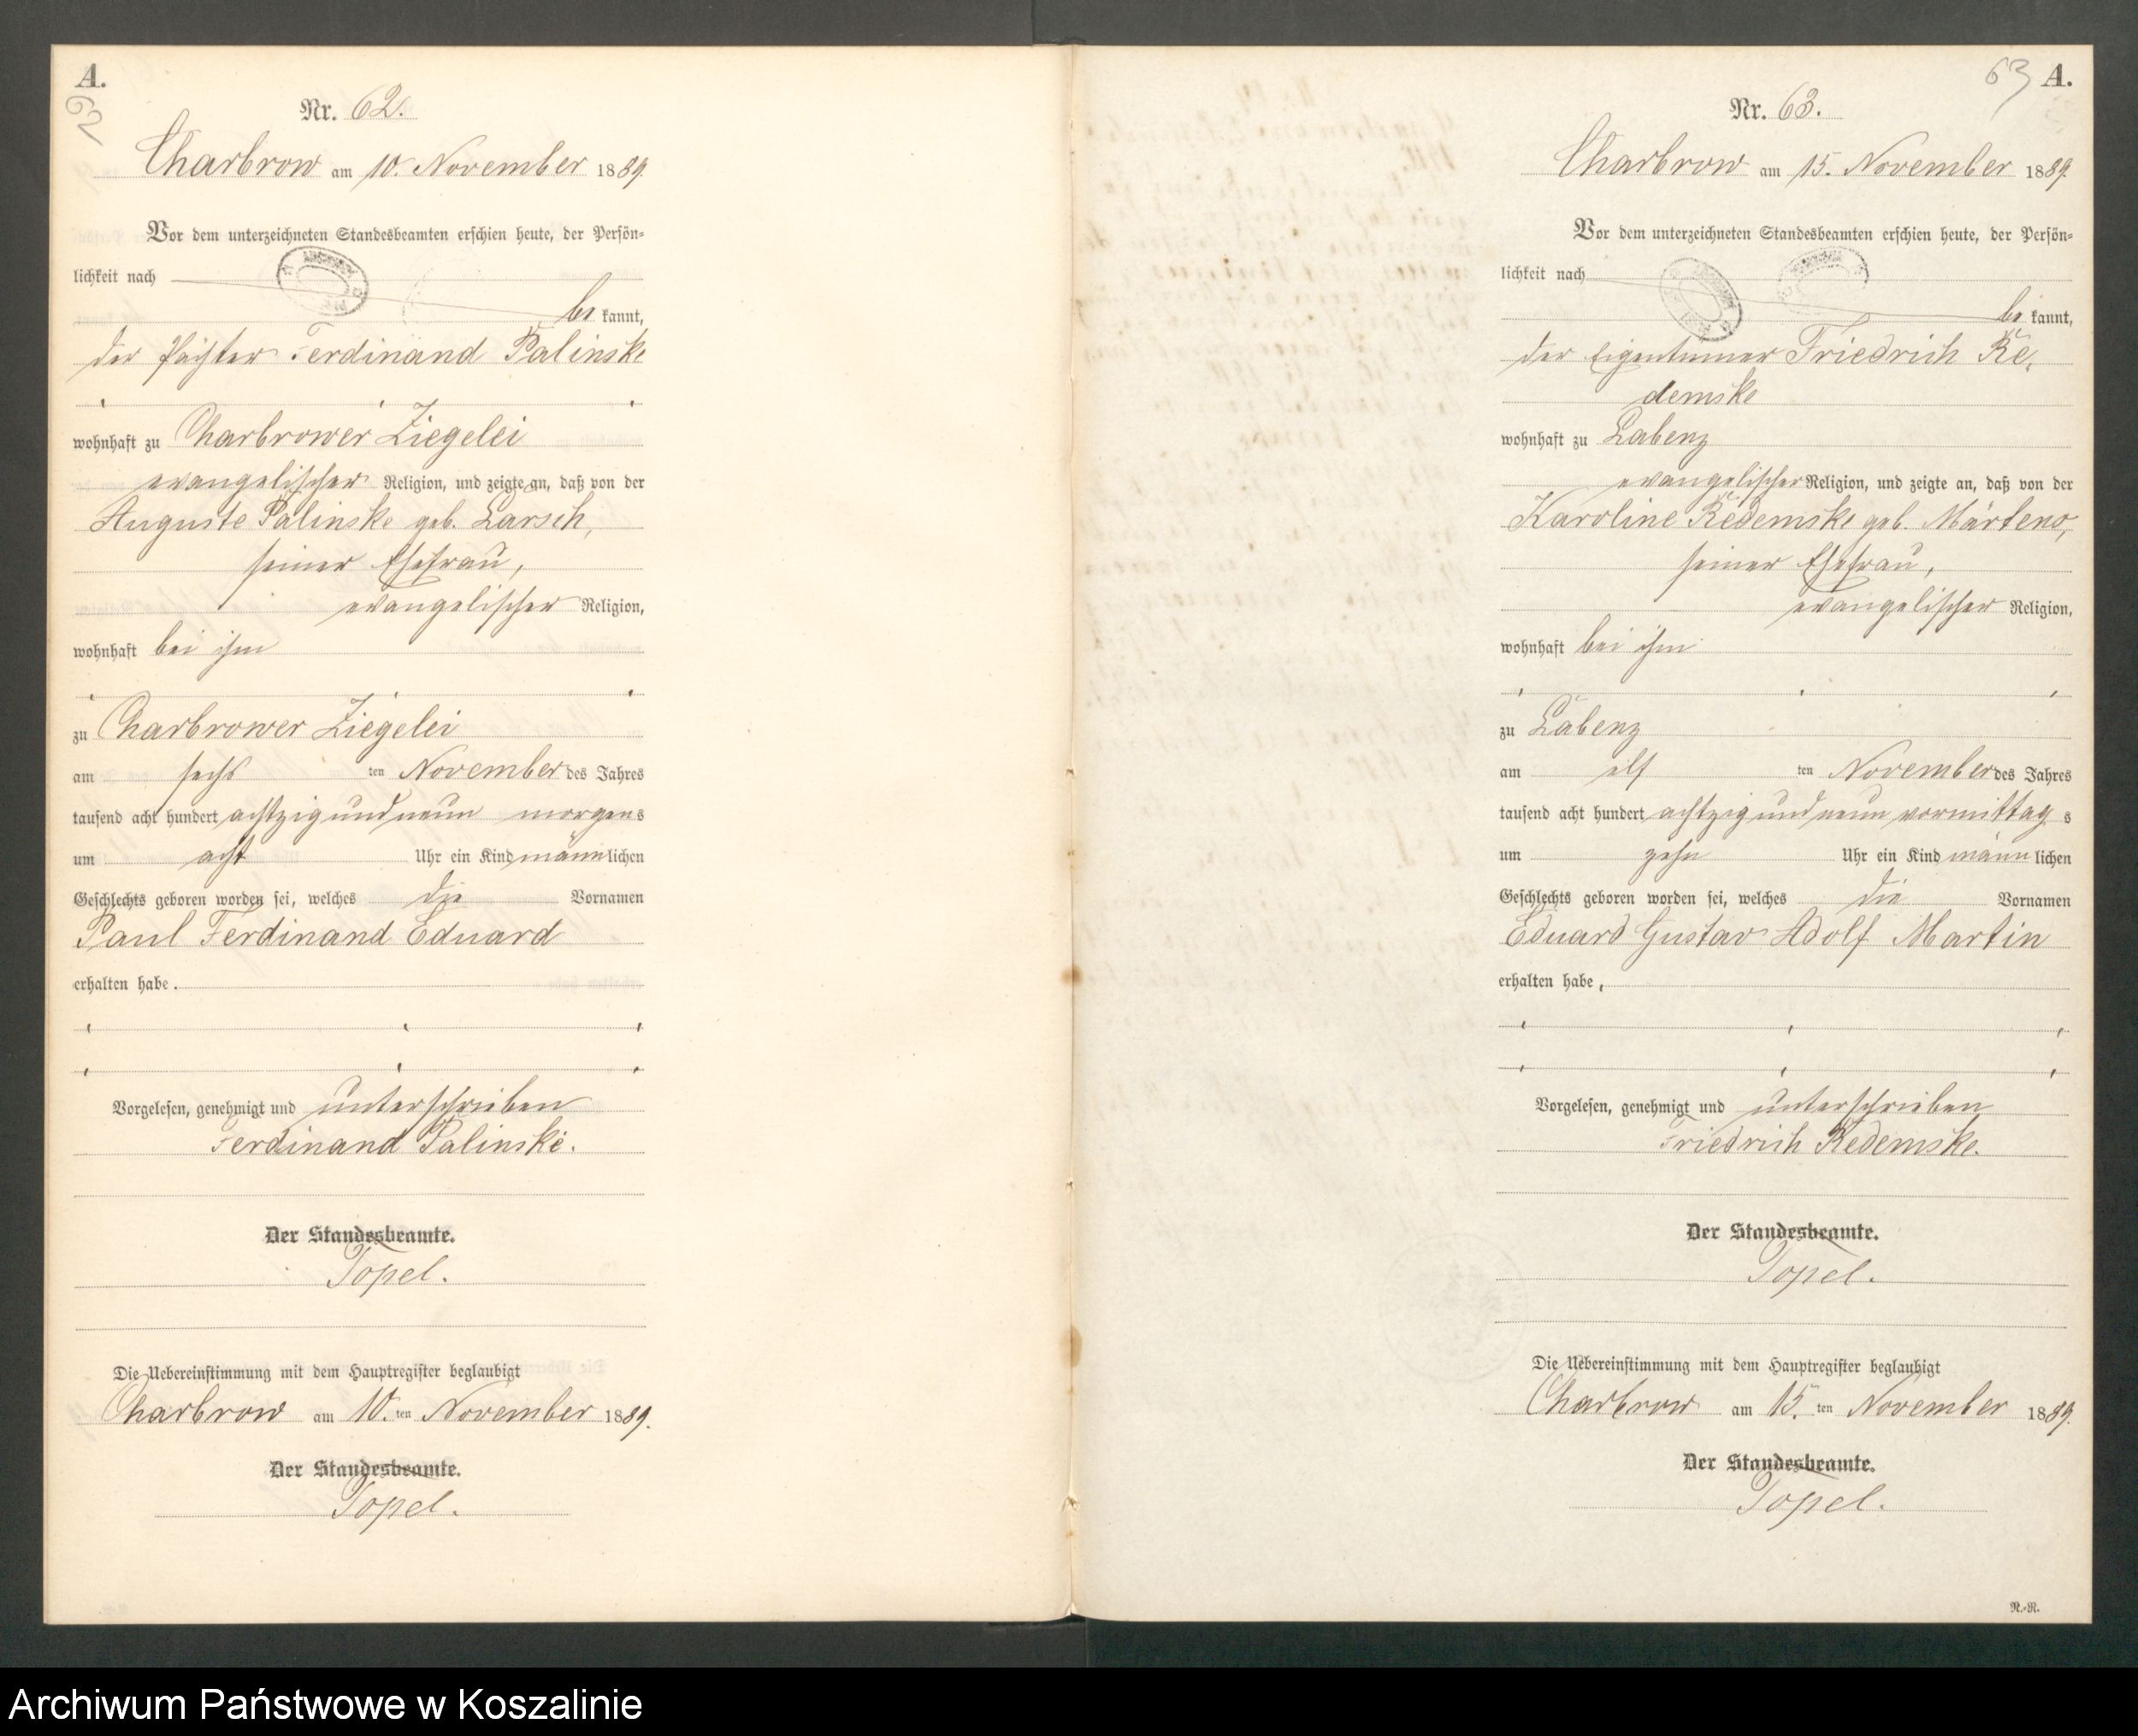 A.
62
Nr. 62.
Charbrow am 10. November 1889.
Vor dem unterzeichneten Standesbeamten erschien heute, der Persön-
lichkeit nach
be kannt,
der Pächter Ferdinand Palinske
wohnhaft zu Charbrower Ziegelei
evangelischer Religion, und zeigte an, daß von der
Auguste Palinske geb. Larsch,
seiner Ehefrau,
evangelischer Religion,
wohnhaft bei ihm
zu Charbrower Ziegelei
am sechs ten November des Jahres
tausend acht hundert achtzig und neun morgens
um acht Uhr ein Kind männlichen
Geschlechts geboren worden sei, welches die Vornamen
Paul Ferdinand Eduard
erhalten habe.
Vorgelesen, genehmigt und unterschrieben
Ferdinand Palinske.
Der Standesbeamte.
Topel.
Die Uebereinstimmung mit dem Hauptregister beglaubigt
Charbrow am 10. ten November 1889.
Der Standesbeamte.
Topel.
63 A.
Nr. 63.
Charbrow am 15. November 1889.
Vor dem unterzeichneten Standesbeamten erschien heute, der Persön-
lichkeit nach
be kannt,
der Eigentümer Friedrich Re-
demske
wohnhaft zu Labenz
evangelischer Religion, und zeigte an, daß von der
Karoline Redemske geb. Märtens,
seiner Ehefrau,
evangelischer Religion,
wohnhaft bei ihm
zu Labenz
am elf ten November des Jahres
tausend acht hundert achtzig und neun vormittag s
um zehn Uhr ein Kind männ lichen
Geschlechts geboren worden sei, welches die Vornamen
Eduard Gustav Adolf Martin
erhalten habe,
Vorgelesen, genehmigt und unterschrieben
Friedrich Redemske.
Der Standesbeamte.
Topel.
Die Uebereinstimmung mit dem Hauptregister beglaubigt
Charbrow am 15. ten November 1889.
Der Standesbeamte.
Topel.
R.-R.
Archiwum Państwowe w Koszalinie